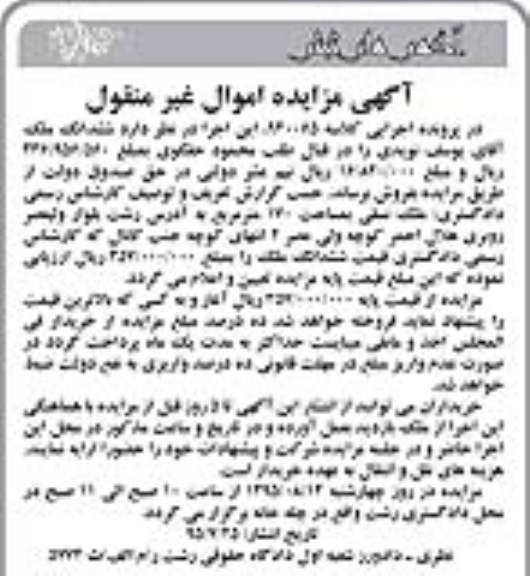 آگهی های ثبتی
آگهی مزایده اموال غیر منقول
در پرونده اجرایی کلاسه این اجرا در نظر دارد ششدانگ ملک
آقای یوسف نویدی را در قبال طلب محمود حقگوی بمبلغ
ریال و مبلغ ریال نیم عشر دولتی در حق صندوق دولت از
طریق مزایده بفروش برساند. حسب گزارش تعریف و توصیف کارشناس رسمی
دادگستری: ملک بمساحت مترمربع به آدرس رشت بلوار ولیعصر
روبری هلال احمر کوچه ولی عصر ۲ انتهای کوچه جنب کانال که کارشناس
رسمی دادگستری قیمت ششدانگ ملک را بمبلغ ریال ارزیابی
نموده که این مبلغ قیمت پایه مزایده تعیین و اعلام می گردد.
مزایده از قیمت پایه ریال آغاز و به کسی که بالاترین قیمت
را پیشنهاد نماید فروخته خواهد شد ده درصد مبلغ مزایده از خریدار فی
المجلس اخذ و مابقی میبایست حداکثر به مدت یک ماه پرداخت گردد در
صورت عدم واریز مبلغ در مهلت قانونی ده درصد واریزی به نفع دولت ضبط
خواهد شد.
خریداران می توانند از انتشار این آگهی تا ۵ روز قبل از مزایده با هماهنگی
این اجرا از ملک بازدید بعمل آورده و در تاریخ و ساعت مذکور در محل این
اجرا حاضر و در جلسه مزایده شرکت و پیشنهادات خود را حضورا ارایه نمایند.
هزینه های نقل و انتقال به عهده خریدار است.
مزایده در روز چهارشنبه ۱۳۹۵/۰۸/۱۲ از ساعت ۱۰ صبح الی ۱۱ صبح در
محل دادگستری رشت واقع در برگزار می گردد.
تاریخ انتشار: ۹۵/۷/۲۵
نظری - دادورز شعبه اول دادگاه حقوقی رشت